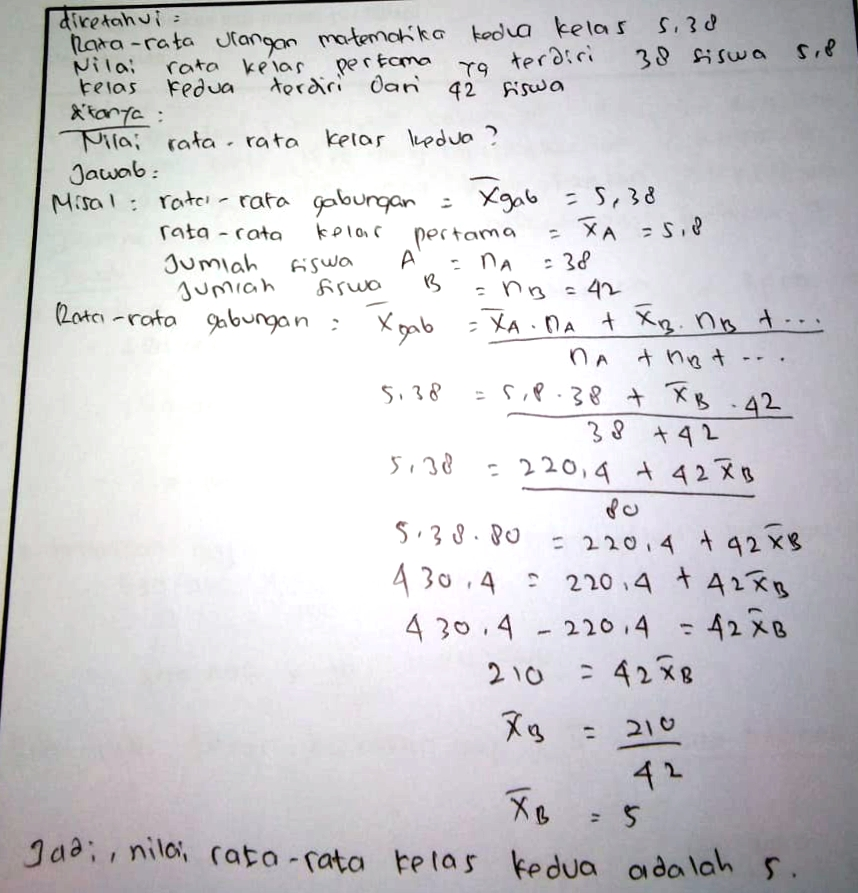 diketahui :
Rata-rata ulangan matematika kedua kelas 5,38
Nilai rata kelas pertama yg terdiri 38 siswa 5,8
kelas kedua terdiri dari 42 siswa
ditanya :
Nilai rata-rata kelas kedua?
Jawab :
Misal : rata-rata gabungan = x̄gab = 5,38
rata-rata kelas pertama = x̄A = 5,8
Jumlah siswa A = nA = 38
Jumlah siswa B = nB = 42
Rata-rata gabungan : x̄gab = x̄A . nA + x̄B . nB + ...
nA + nB + ...
5,38 = 5,8 . 38 + x̄B . 42
38 + 42
5,38 = 220,4 + 42 x̄B
80
5,38 . 80 = 220,4 + 42 x̄B
430,4 = 220,4 + 42 x̄B
430,4 - 220,4 = 42 x̄B
210 = 42 x̄B
x̄B = 210
42
x̄B = 5
Jadi, nilai rata-rata kelas kedua adalah 5.